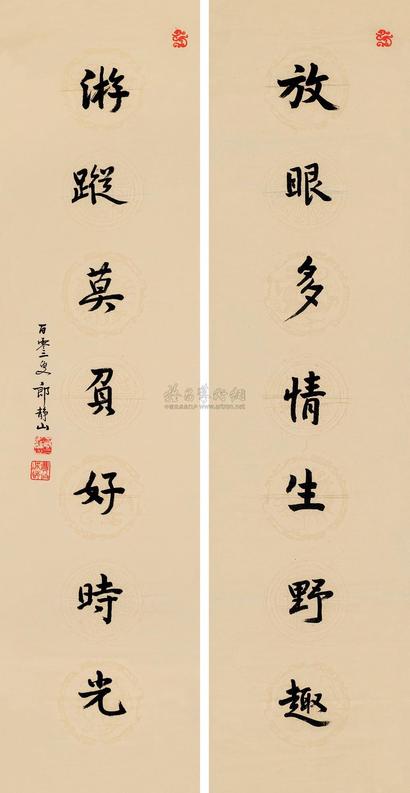 放眼多情生野趣
游蹤莫負好時光
百零二叟郎靜山